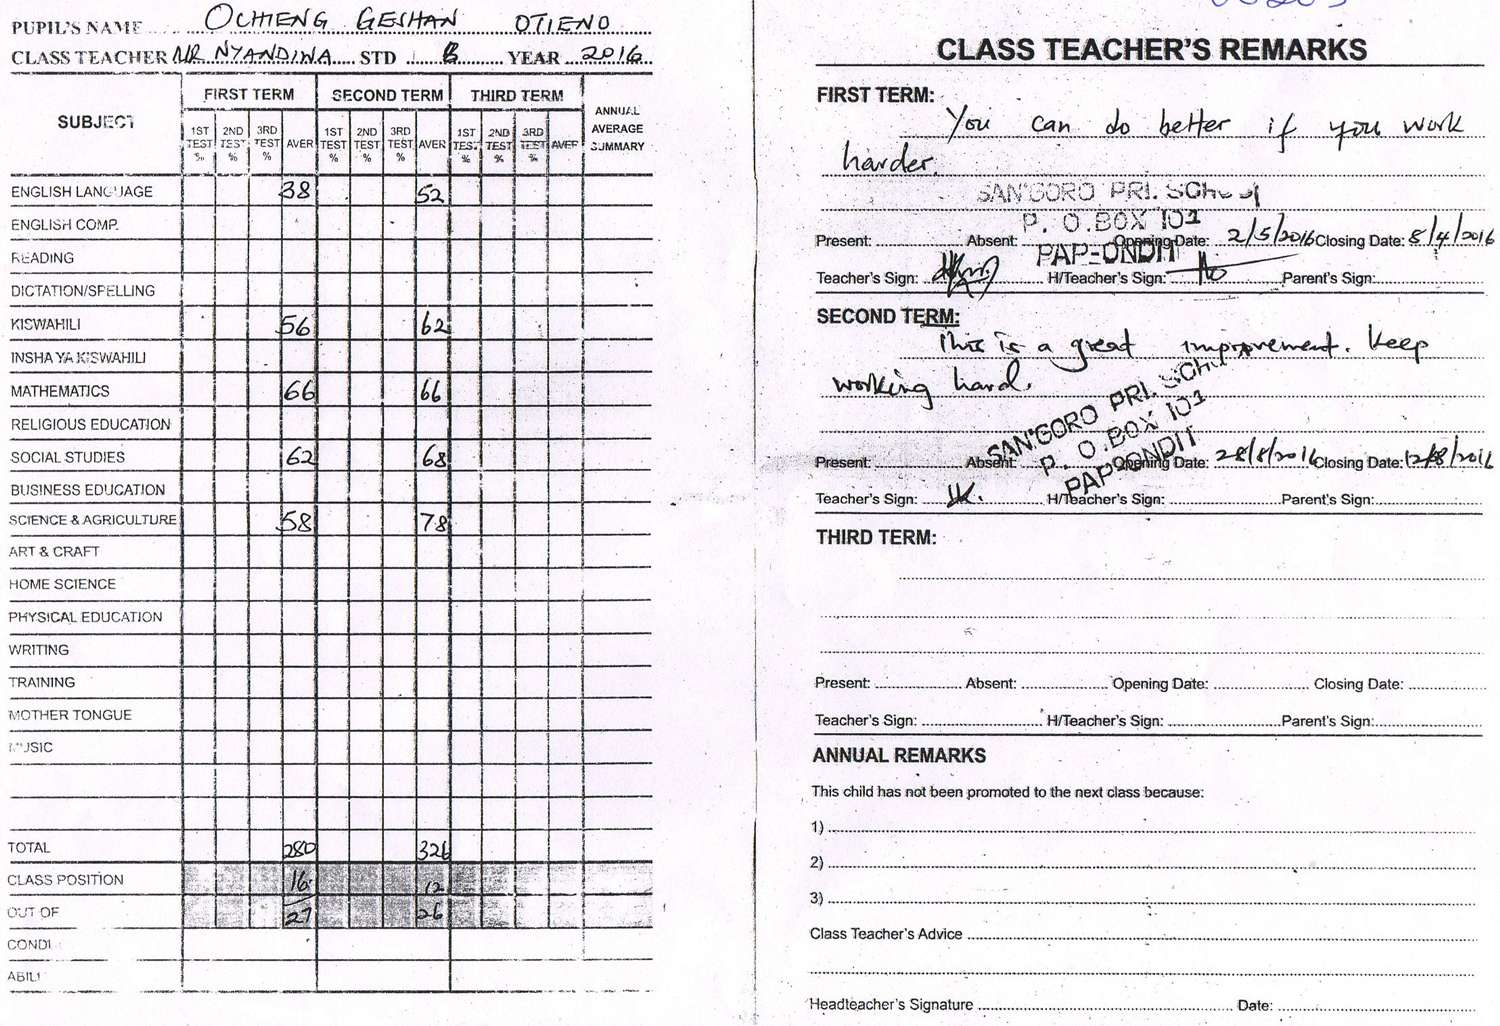 PUPIL'S NAME OCHIENG GESHAN OTIENO
CLASS TEACHER MR NYANDIWA STD B YEAR 2016
SUBJECT FIRST TERM SECOND TERM THIRD TERM ANNUAL AVERAGE SUMMARY
1ST TEST % 2ND TEST % 3RD TEST % AVER 1ST TEST % 2ND TEST % 3RD TEST % AVER 1ST TEST % 2ND TEST % 3RD TEST % AVER
ENGLISH LANGUAGE 38 52
ENGLISH COMP.
READING
DICTATION/SPELLING
KISWAHILI 56 62
INSHA YA KISWAHILI
MATHEMATICS 66 66
RELIGIOUS EDUCATION
SOCIAL STUDIES 62 68
BUSINESS EDUCATION
SCIENCE & AGRICULTURE 58 78
ART & CRAFT
HOME SCIENCE
PHYSICAL EDUCATION
WRITING
TRAINING
MOTHER TONGUE
MUSIC
TOTAL 280 326
CLASS POSITION 16 12
OUT OF 27 26
CONDI
ABILI
CLASS TEACHER'S REMARKS
FIRST TERM:
You can do better if you work
harder.
SAN'GORO PRI. SCHOOL
P. O. BOX 101
PAP-ONDIT
Present: Absent: Opening Date: 2/5/2016 Closing Date: 8/4/2016
Teacher's Sign: H/Teacher's Sign: Parent's Sign:
SECOND TERM:
This is a great improvement. Keep
working hard.
SAN'GORO PRI. SCH
P. O. BOX 101
PAP-ONDIT
Present: Absent: Opening Date: 28/8/2016 Closing Date: 12/8/2016
Teacher's Sign: H/Teacher's Sign: Parent's Sign:
THIRD TERM:
Present: Absent: Opening Date: Closing Date:
Teacher's Sign: H/Teacher's Sign: Parent's Sign:
ANNUAL REMARKS
This child has not been promoted to the next class because:
1)
2)
3)
Class Teacher's Advice
Headteacher's Signature Date: